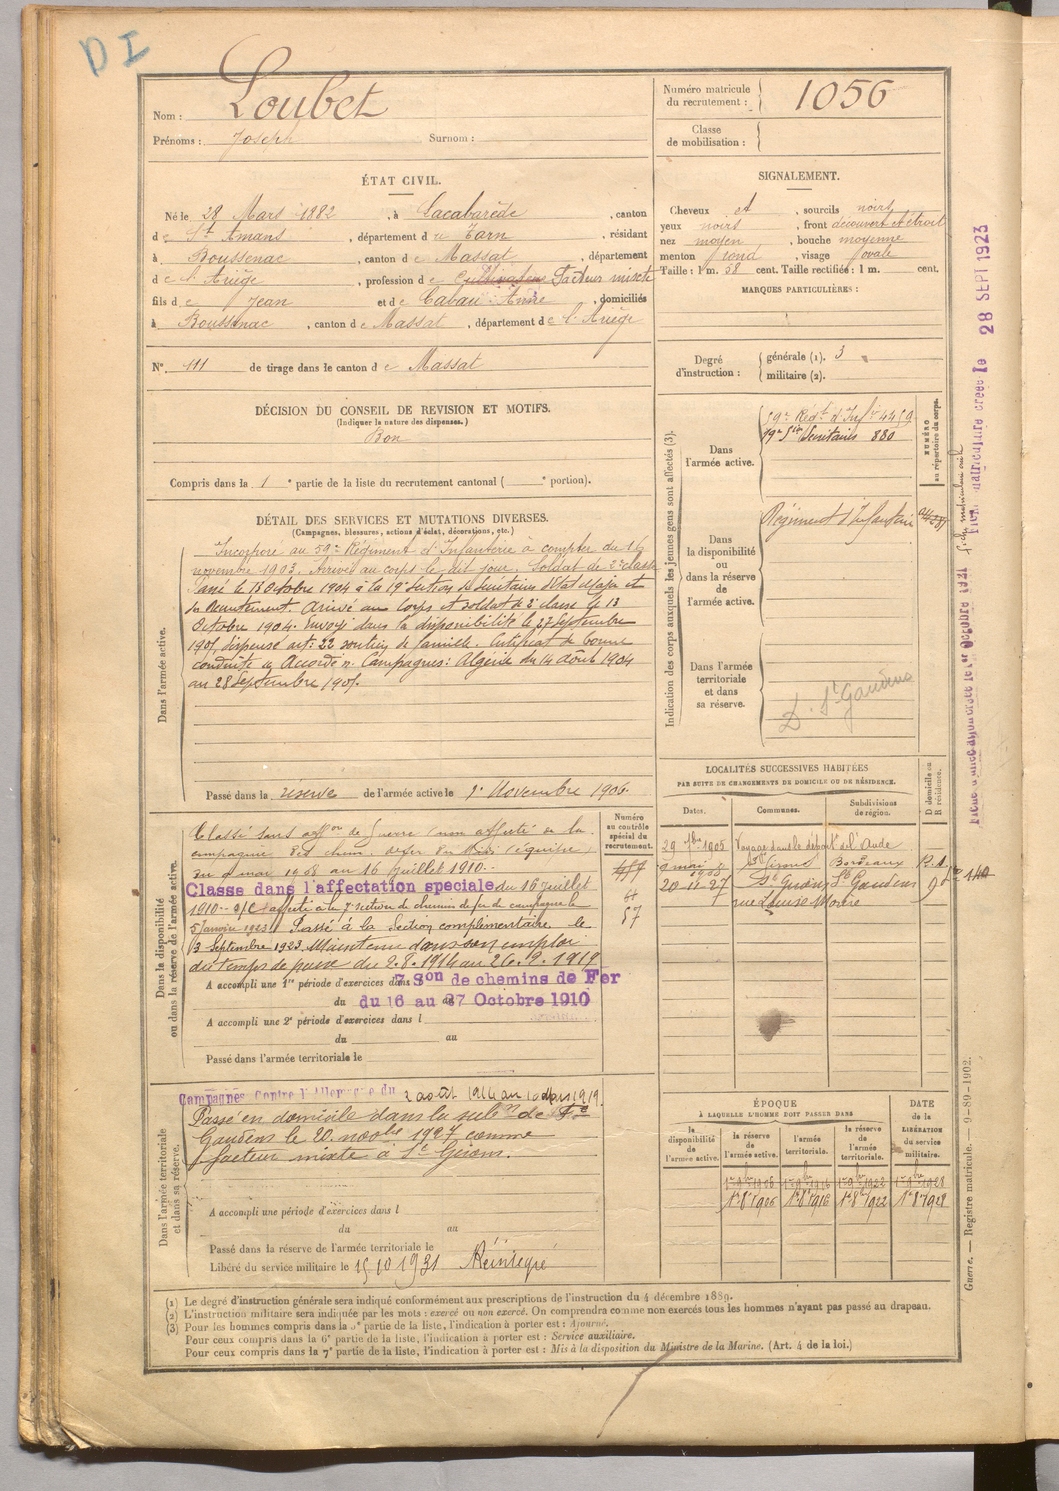 D I
Nom : Loubet
Prénoms : Joseph Surnom :
Numéro matricule du recrutement : 1056
Classe de mobilisation :
ÉTAT CIVIL.
Né le 28 Mars 1882, à Lacabarède, canton
de St Amans, département du Tarn, résidant
à Boussenac, canton de Massat, département
de l'Ariège, profession de Cultivateur Facteur mixte
fils de Jean et de Cabau Anne, domiciliés
à Boussenac, canton de Massat, département de l'Ariège
N° 111 de tirage dans le canton de Massat
SIGNALEMENT.
Cheveux et, sourcils noirs
yeux noirs, front découvert et étroit
nez moyen, bouche moyenne
menton rond, visage ovale
Taille : 1 m. 58 cent. Taille rectifiée : 1 m. cent.
MARQUES PARTICULIÈRES :
Degré d'instruction : générale (1). 3
militaire (2).
DÉCISION DU CONSEIL DE REVISION ET MOTIFS.
(Indiquer la nature des dispenses.)
Bon
Compris dans la 1e partie de la liste du recrutement cantonal ( e portion).
Indication des corps auxquels les jeunes gens sont affectés (3).
NUMÉRO au répertoire du corps.
Dans l'armée active.
59e Régt d'Inf 4459
19e Son Secrétaires 880
Dans la disponibilité ou dans la réserve de l'armée active.
Régiment d'Infanterie
Dans l'armée territoriale et dans sa réserve.
D. St Gaudens
DÉTAIL DES SERVICES ET MUTATIONS DIVERSES.
(Campagnes, blessures, actions d'éclat, décorations, etc.)
Dans l'armée active.
Incorporé au 59e Régiment d'Infanterie à compter du 16
novembre 1903. Arrivé au corps le dit jour. Soldat de 2e classe
Passé le 13 Octobre 1904 à la 19e section de Secrétaires d'Etat Major et
du Recrutement arrivé au Corps et soldat de 2e classe le 13
Octobre 1904. Envoyé dans la disponibilité le 27 Septembre
1905 dispensé art. 22 soutien de famille. Certificat de bonne
conduite Accordé. Campagnes : Algérie du 14 Août 1904
au 28 Septembre 1905.
Passé dans la réserve de l'armée active le 1er Novembre 1906
Dans la disponibilité ou dans la réserve de l'armée active.
Numéro au contrôle spécial du recrutement.
Classé sans affon de guerre (non affecté) de la
compagnie des chem. de fer du Midi (équipier)
du 9 mai 1908 au 16 Juillet 1910.
Classé dans l'affectation spéciale du 16 juillet
1910 affecté à la 7e section de chemins de fer de campagne le
5 Janvier 1923. Passé à la Section complémentaire le
13 Septembre 1923. Maintenu dans son emploi
du temps de paix du 2.8.1914 au 26.9.1919
57
A accompli une 1re période d'exercices dans 7 Son de chemins de Fer
du 16 au 27 Octobre 1910
A accompli une 2e période d'exercices dans l
du au
Passé dans l'armée territoriale le
LOCALITÉS SUCCESSIVES HABITÉES
PAR SUITE DE CHANGEMENTS DE DOMICILE OU DE RÉSIDENCE.
Dates. Communes. Subdivisions de région. D domicile ou R résidence.
29 7bre 1905 Voyage dans le départt de l'Aude
9 mai 1908 Bordeaux
20-11-27 St Girons St Gaudens D
rue Louise
Dans l'armée territoriale et dans sa réserve.
Campagnes contre l'Allemagne du 2 août 1914 au 10 Mars 1919.
Passé en domicile dans la subon de St
Gaudens le 20 novbre 1927 comme
facteur mixte à St Girons.
A accompli une période d'exercices dans l
du au
Passé dans la réserve de l'armée territoriale le
Libéré du service militaire le 15 10 1931 Réintégré
ÉPOQUE
À LAQUELLE L'HOMME DOIT PASSER DANS
DATE de la LIBÉRATION du service militaire.
la disponibilité de l'armée active. la réserve de l'armée active. l'armée territoriale. la réserve de l'armée territoriale.
1er 9bre 1906 1er 9bre 1916 1er 9bre 1922 1er 9bre 1928
1er 8bre 1906 1er 8bre 1916 1er 8bre 1922 1er 8bre 1928
(1) Le degré d'instruction générale sera indiqué conformément aux prescriptions de l'instruction du 4 décembre 1889.
(2) L'instruction militaire sera indiquée par les mots : exercé ou non exercé. On comprendra comme non exercés tous les hommes n'ayant pas passé au drapeau.
(3) Pour les hommes compris dans la 5e partie de la liste, l'indication à porter est : Ajourné.
Pour ceux compris dans la 6e partie de la liste, l'indication à porter est : Service auxiliaire.
Pour ceux compris dans la 7e partie de la liste, l'indication à porter est : Mis à la disposition du Ministre de la Marine. (Art. 4 de la loi.)
Guerre. — Registre matricule. — 9-89-1902.
Fiche matriculaire créée le 28 SEPT 1923